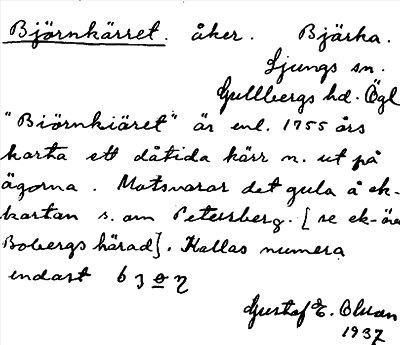 Björnkärret. åker. Bjärka.
Ljungs sn.
Gullbergs hd. Ögl
"Biörnkiäret" är enl. 1755 års
karta ett dåtida kärr n. ut på
ägorna. Motsvarar det gula å ek-
kartan s. om Petersberg. [se ek-
Bobergs härad]. Kallas numera
endast
Gustaf E. Olson
1937